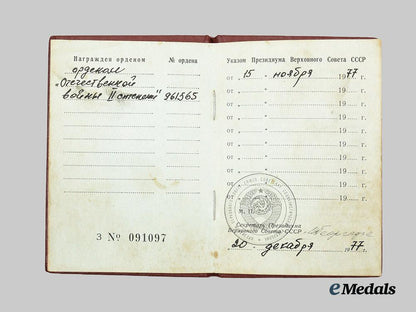 Награжден орденом № ордена
орденом
„Отечественной
войны II степени" 961565
З № 091097
Указом Президиума Верховного Совета СССР
от 15 . ноября 1977 г.
от . 19 г.
от . 19 г.
от . 19 г.
от . 19 г.
от . 19 г.
от . 19 г.
от . 19 г.
от 19 г.
от 19 г.
М. П.
Секретарь Президиума
Верховного Совета СССР
20 . декабря 1977 г.
eMedals